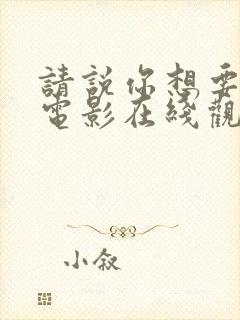 請說你想要
電影在綫觀
小叙